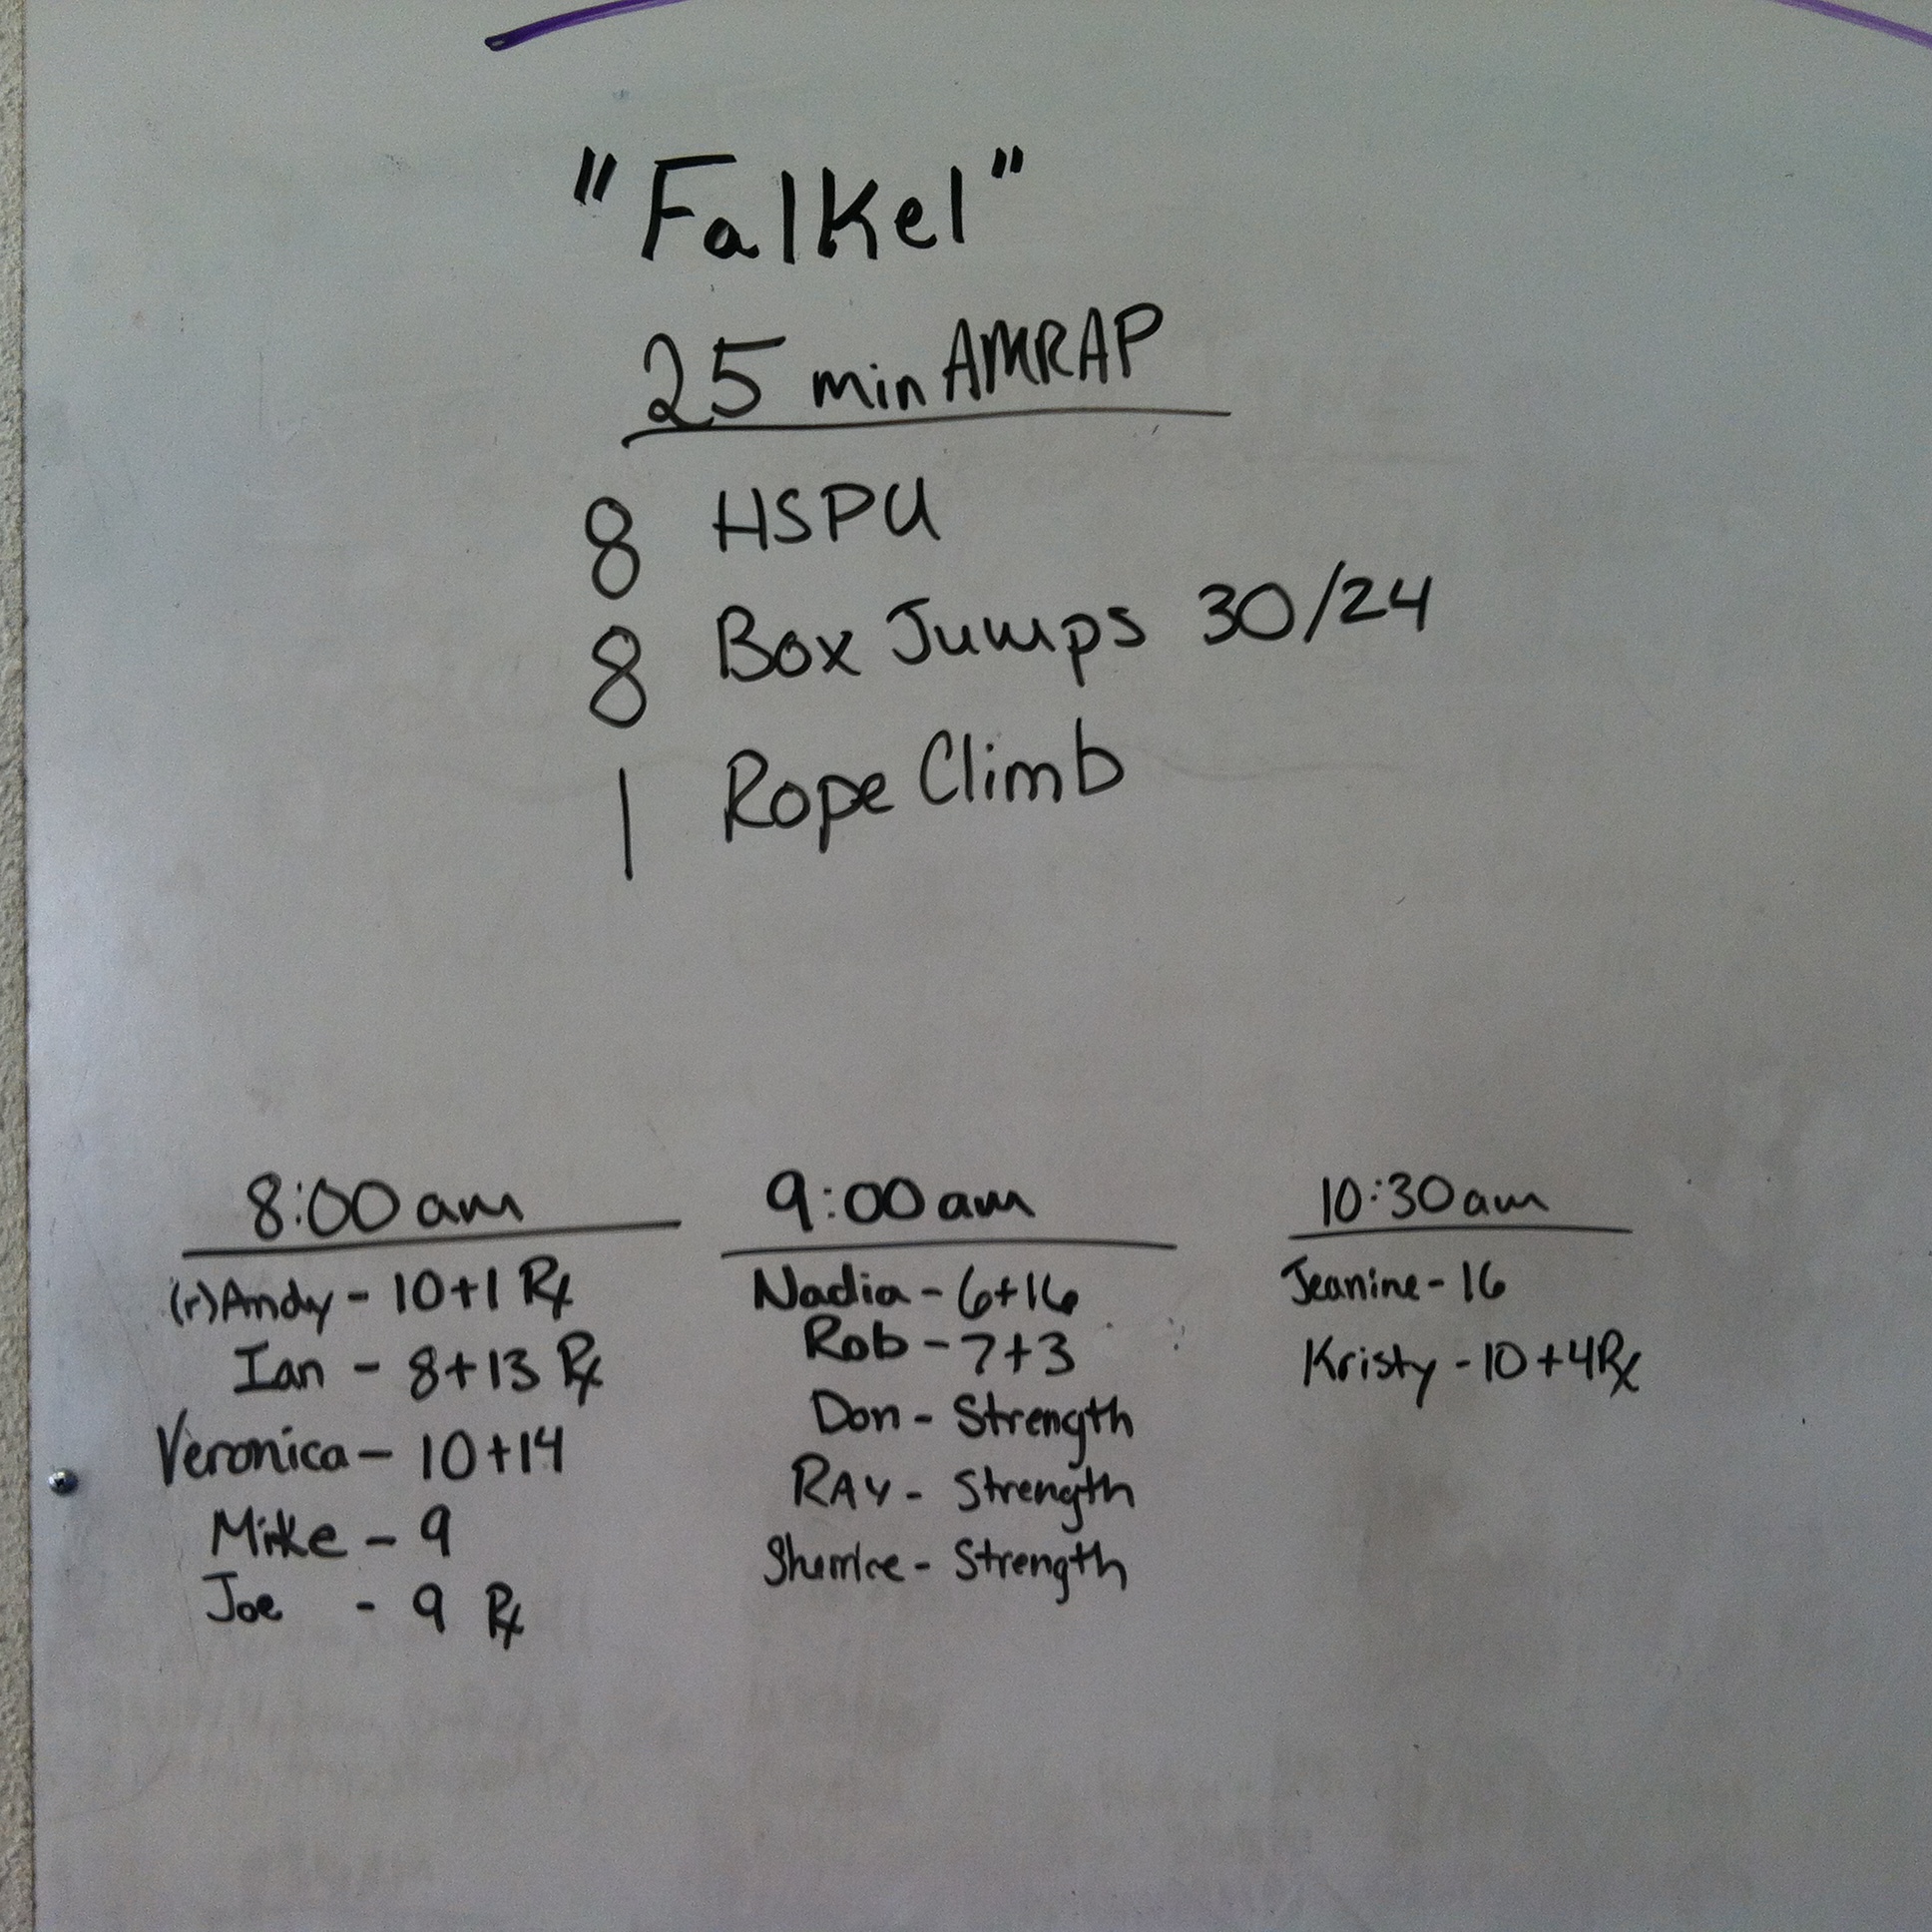 "Falkel"
25 min AMRAP
8 HSPU
8 Box Jumps 30/24
1 Rope Climb
8:00 am
(r) Andy - 10+1 Rx
Ian - 8+13 Rx
Veronica - 10+14
Mike - 9
Joe - 9 Rx
9:00 am
Nadia - 6+16
Rob - 7+3
Don - Strength
RAY - Strength
- Strength
10:30 am
Jeanine - 16
Kristy - 10+4 Rx